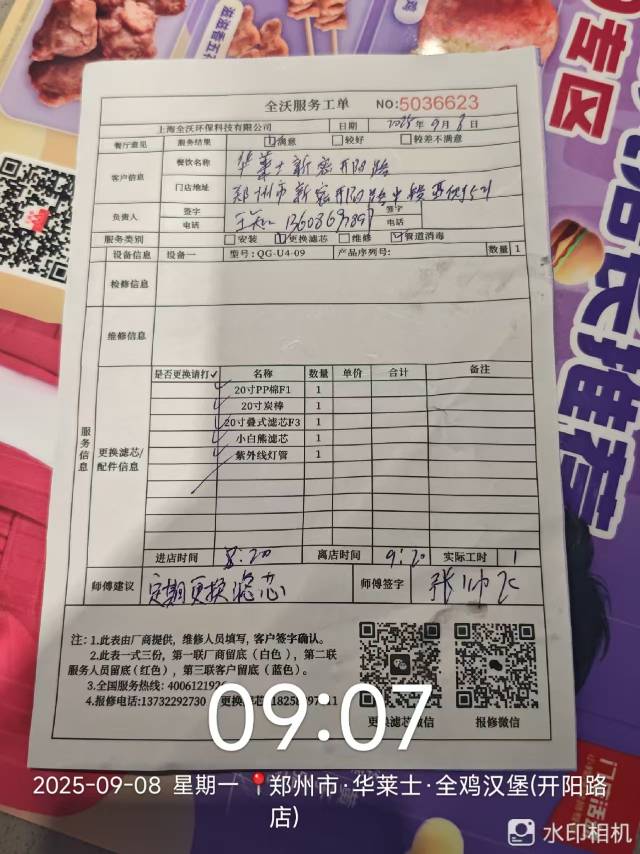 滋滋香五花
鸡
专区
店长推荐
全沃服务工单 NO:5036623
上海全沃环保科技有限公司 日期 2025年9月8日
餐厅意见 服务结果 满意 较好 较差不满意
客户信息 餐饮名称 华莱士新密开阳路
门店地址
负责人 签字 电话 签字 电话
服务类别 安装 更换滤芯 维修 管道消毒
设备信息 设备一 型号:QG-U4-09 产品序列号: 数量 1
检修信息
维修信息
服务信息
更换滤芯/配件信息
是否更换请打✓ 名称 数量 单价 合计 备注
✓ 20寸PP棉F1 1
✓ 20寸炭棒 1
✓ 20寸叠式滤芯F3 1
✓ 小白熊滤芯 1
✓ 紫外线灯管 1
进店时间 8:20 离店时间 9:20 实际工时 1
师傅建议 定期更换滤芯 师傅签字
注: 1.此表由厂商提供，维修人员填写，客户签字确认。
2.此表一式三份，第一联厂商留底（白色），第二联
服务人员留底(红色)，第三联客户留底（蓝色）。
3.全国服务热线: 400612192
4.报修电话:13732292730 更换
更换滤芯微信 报修微信
09:07
2025-09-08 星期一 郑州市·华莱士·全鸡汉堡(开阳路
店)
水印相机